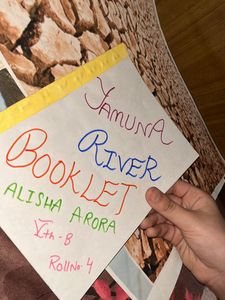 YAMUNA
RIVER
BOOKLET
ALISHA ARORA
Vth-B
Roll No. 4